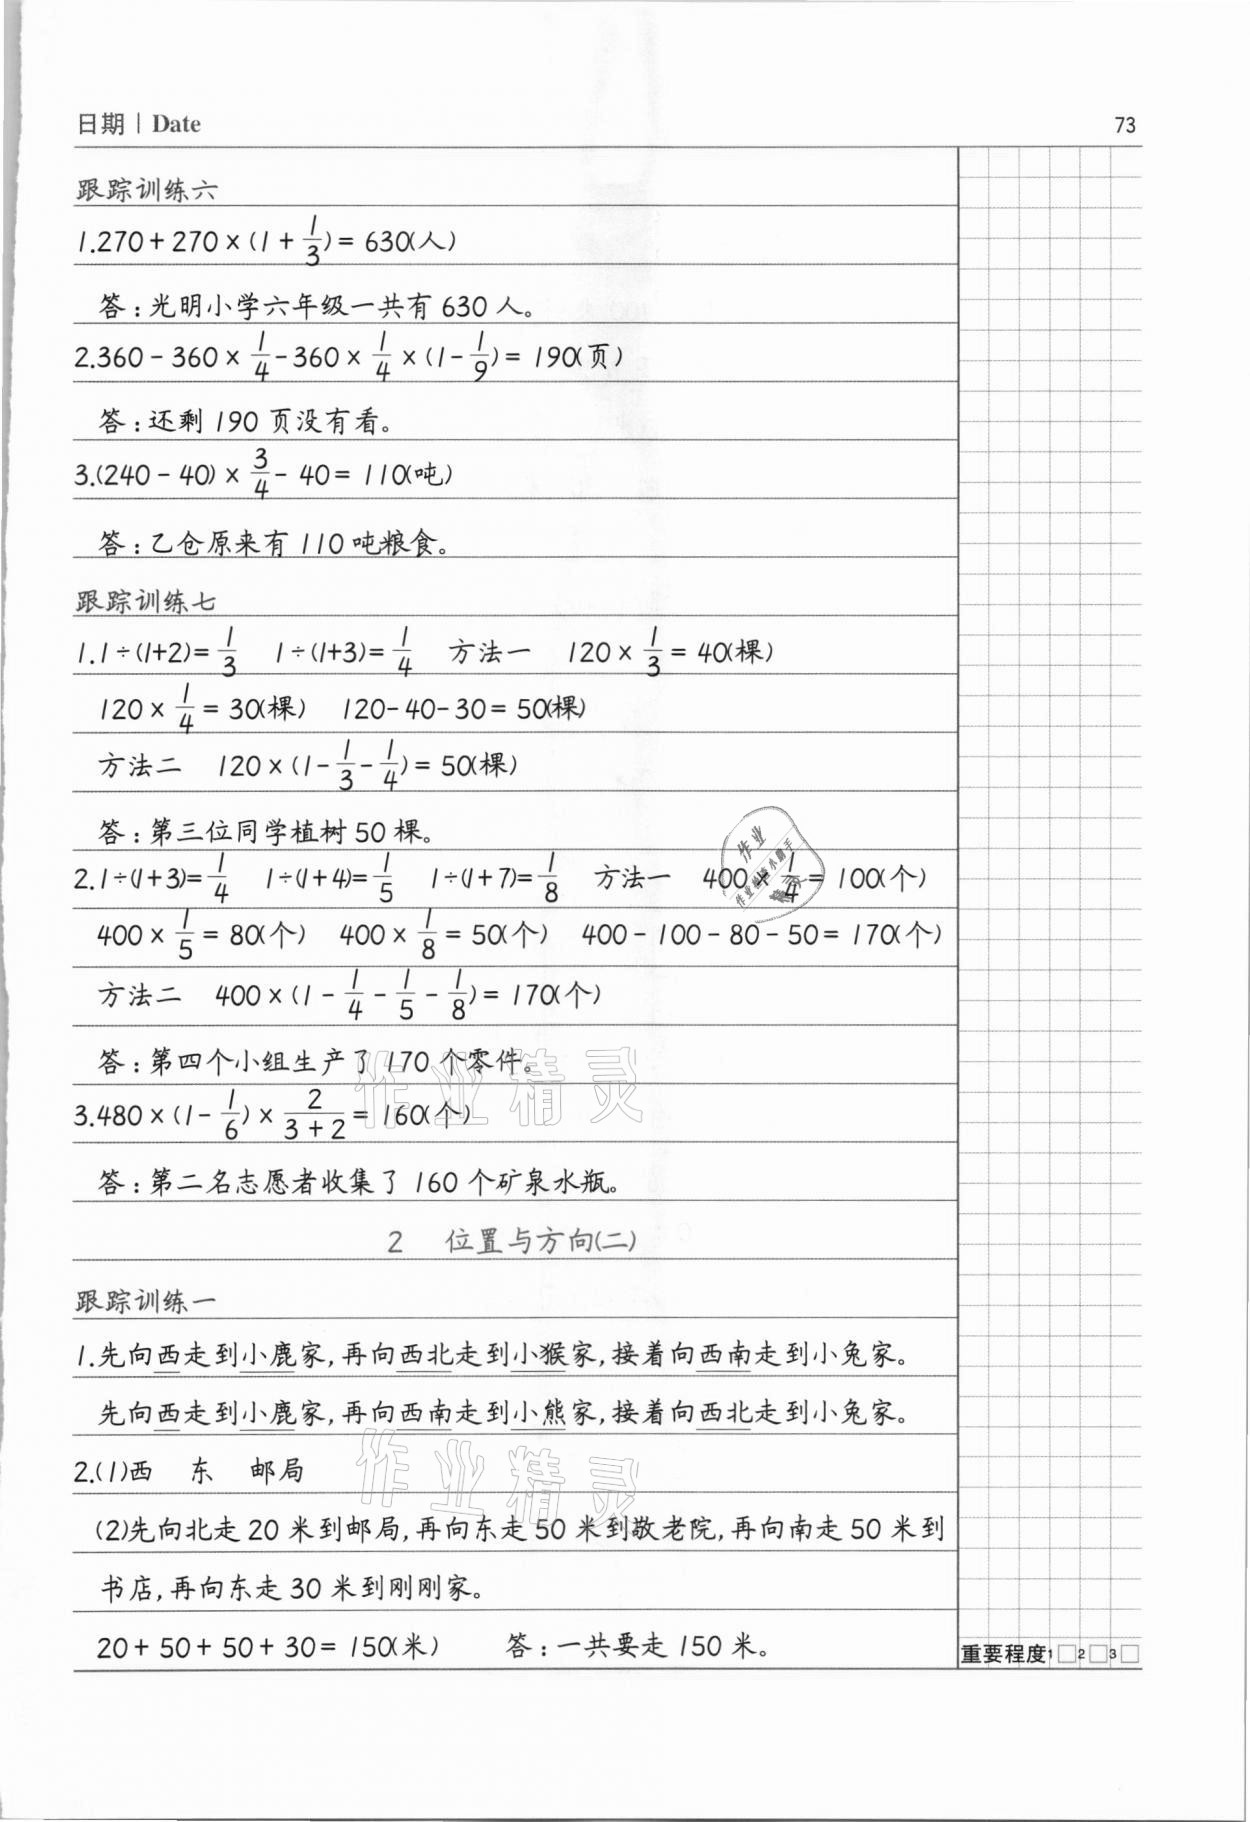 日期 | Date
73
跟踪训练六
1.270+270×(1+1/3)=630(人)
答:光明小学六年级一共有630人。
2.360-360×1/4-360×1/4×(1-1/9)=190(页)
答:还剩190页没有看。
3.(240-40)×3/4-40=110(吨)
答:乙仓原来有110吨粮食。
跟踪训练七
1.1÷(1+2)=1/3 1÷(1+3)=1/4 方法一 120×1/3=40(棵)
120×1/4=30(棵) 120-40-30=50(棵)
方法二 120×(1-1/3-1/4)=50(棵)
答:第三位同学植树50棵。
2.1÷(1+3)=1/4 1÷(1+4)=1/5 1÷(1+7)=1/8 方法一 400 1/4=100(个)
400×1/5=80(个) 400×1/8=50(个) 400-100-80-50=170(个)
方法二 400×(1-1/4-1/5-1/8)=170(个)
答:第四个小组生产了170个零件。
作业精灵
3.480×(1-1/6)×2/(3+2)=160(个)
答:第二名志愿者收集了160个矿泉水瓶。
2 位置与方向(二)
跟踪训练一
1.先向西走到小鹿家,再向西北走到小猴家,接着向西南走到小兔家。
先向西走到小鹿家,再向西南走到小熊家,接着向西北走到小兔家。
2.(1)西 东 邮局
作业精灵
(2)先向北走20米到邮局,再向东走50米到敬老院,再向南走50米到
书店,再向东走30米到刚刚家。
20+50+50+30=150(米) 答:一共要走150米。
重要程度1□2□3□